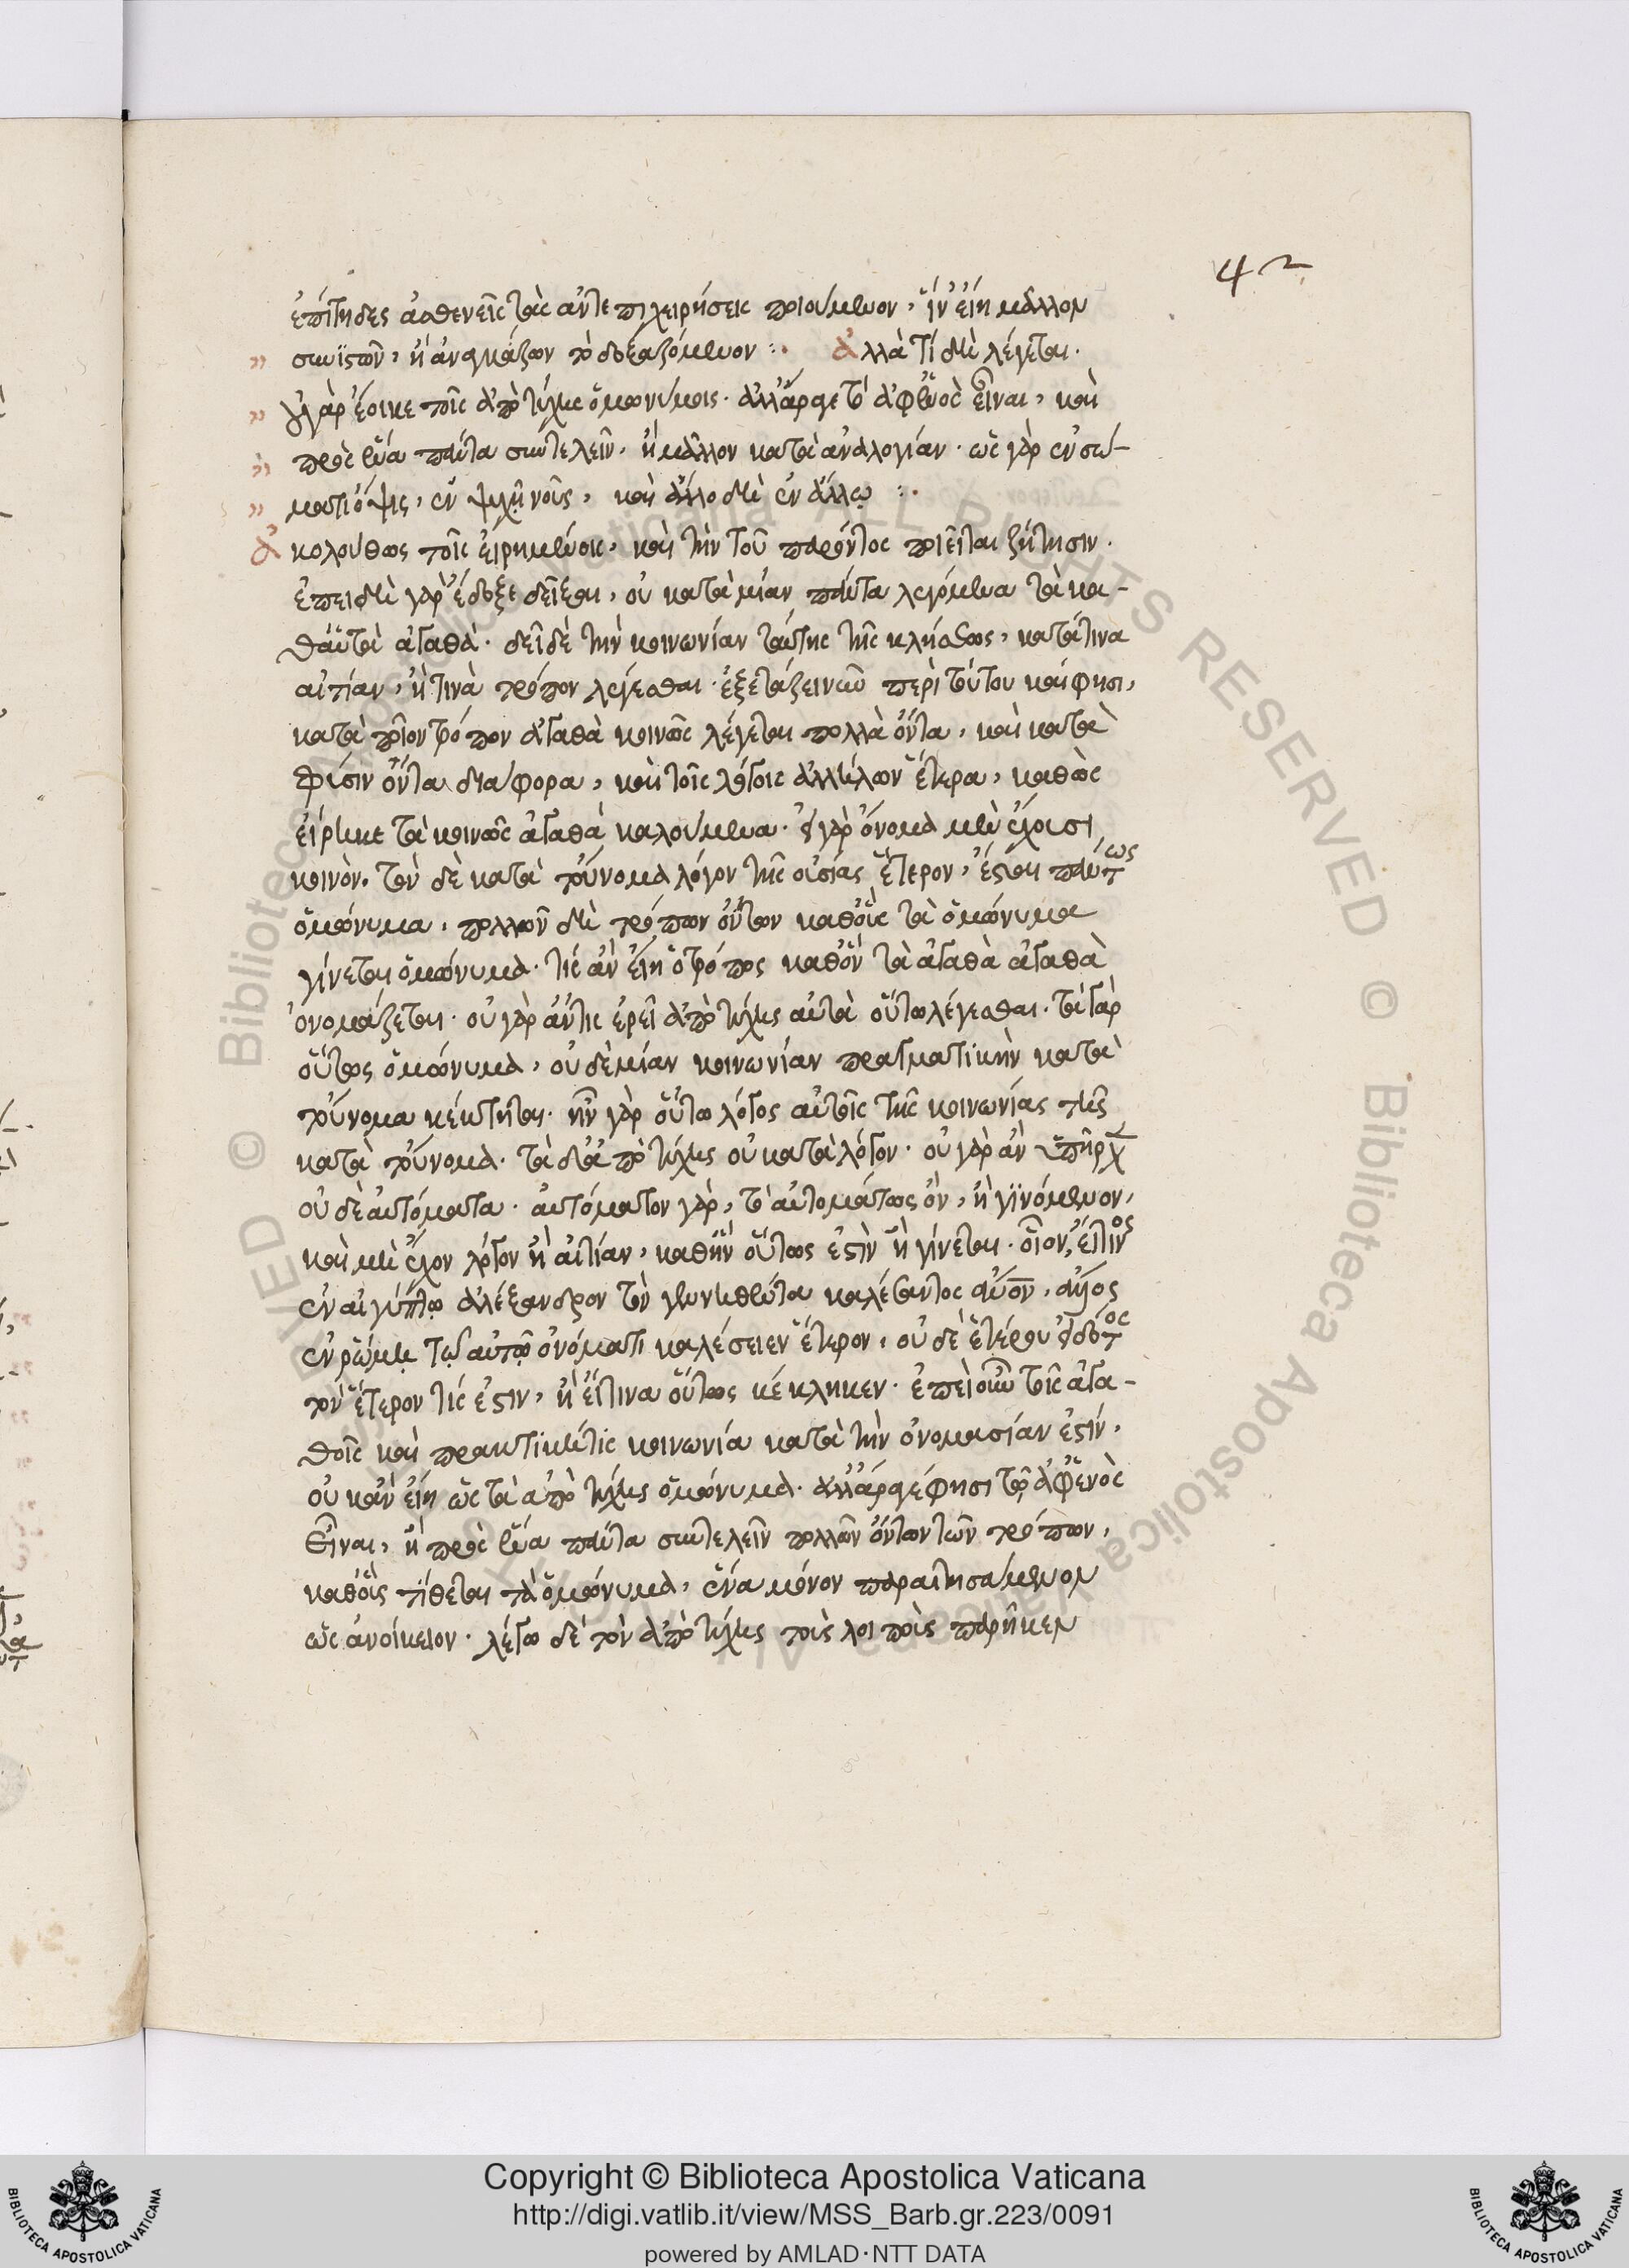 42
ἐπίτηδες ἀσθενεῖς τὰς ἀντεπιχειρήσεις ποιούμενον, ἵν' εἴη μᾶλλον
συνιστῶν, ἢ ἀνασκευάζων τὸ δοξαζόμενον :· ἀλλὰ τί δὴ λέγεται·
οὐ γὰρ ἔοικε τοῖς ἀπὸ τύχης ὁμωνύμοις· ἀλλ' ἆρά γε τὸ ἀφ' ἑνὸς εἶναι, καὶ
πρὸς ἓν ἅπαντα συντελεῖν, ἢ μᾶλλον κατὰ ἀναλογίαν· ὡς γὰρ ἐν σώ-
ματι ὄψις, ἐν ψυχῇ νοῦς, καὶ ἄλλο δὴ ἐν ἄλλῳ :·
ἀκολούθως τοῖς εἰρημένοις, καὶ τὴν τοῦ παρόντος ποιεῖται ζήτησιν·
ἐπειδὴ γὰρ ἔδοξε δεῖξαι, οὐ κατὰ μίαν πάντα λεγόμενα τὰ κα-
θαὑτὰ ἀγαθὰ· δεῖ δὲ τὴν κοινωνίαν ταύτης τῆς κλήσεως, κατά τινα
αἰτίαν, ἤ τινὰ τρόπον λέγεσθαι· ἐξετάζειν οὖν περὶ τούτου καί φησι,
κατὰ ποῖον τρόπον ἀγαθὰ κοινῶς λέγεται πολλὰ ὄντα, καὶ κατὰ
φύσιν ὄντα διάφορα, καὶ τοῖς λόγοις ἀλλήλων ἕτερα, καθὼς
εἴρηκε τὰ κοινῶς ἀγαθὰ καλούμενα· εἰ γὰρ ὄνομα μὲν ἔχουσι
κοινὸν· τὸν δὲ κατὰ τοὔνομα λόγον τῆς οὐσίας ἕτερον, ἔσται πάντως
ὁμώνυμα, πολλῶν δὴ τρόπων ὄντων καθ' οἷς τὰ ὁμώνυμα
γίνεται ὁμώνυμα· τίς ἂν εἴη ὁ τρόπος καθ' ὃν τὰ ἀγαθὰ ἀγαθὰ
ὀνομάζεται· οὐ γὰρ ἄν τις ἐρεῖ ἀπὸ τύχης αὐτὰ οὕτω λέγεσθαι· τὰ γὰρ
οὕτως ὁμώνυμα, οὐδεμίαν κοινωνίαν πραγματικὴν κατὰ
τοὔνομα κέκτηται· ἦν γὰρ οὕτω λόγος αὐτοῖς τῆς κοινωνίας τῆς
κατὰ τοὔνομα· τὰ δ' ἀπὸ τύχης οὐ κατὰ λόγον· οὐ γὰρ ἂν ὑπῆρχ
οὐδὲ αὐτόματα· αὐτόματον γὰρ, τὸ αὐτομάτως ὂν, ἢ γινόμενον,
καὶ μὴ ἔχον λόγον ἢ αἰτίαν, καθ' ἣν οὕτως ἐστὶν ἢ γίνεται· οἷον, εἴ τινος
ἐν αἰγύπτῳ ἀλέξανδρον τὸν γεννηθέντα καλέσαντος αὐτὸν, ἄλλος
ἐν ῥώμῃ τῷ αὐτῷ ὀνόματι καλέσειεν ἕτερον, οὐδὲ ἑτέρου εἰδότος
τὸν ἕτερον τίς ἐστιν, ἢ εἴ τινα οὕτως κέκληκεν· ἐπεὶ οὖν τοῖς ἀγα-
θοῖς καὶ πρακτική τις κοινωνία κατὰ τὴν ὀνομασίαν ἐστίν,
οὐκ ἂν εἴη ὡς τὰ ἀπὸ τύχης ὁμώνυμα· ἀλλ' ἆρά γε φησὶ τῷ ἀφ' ἑνὸς
εἶναι, ἢ πρὸς ἓν ἅπαντα συντελεῖν πολλῶν ὄντων τῶν τρόπων,
καθ' οἷς τίθεται τὰ ὁμώνυμα, ἕνα μόνον παραιτησάμενον
ὡς ἀνοίκειον· λέγω δὲ τὸν ἀπὸ τύχης τοὺς λοιποὺς παρῆκεν
Copyright © Biblioteca Apostolica Vaticana
http://digi.vatlib.it/view/MSS_Barb.gr.223/0091
powered by AMLAD·NTT DATA